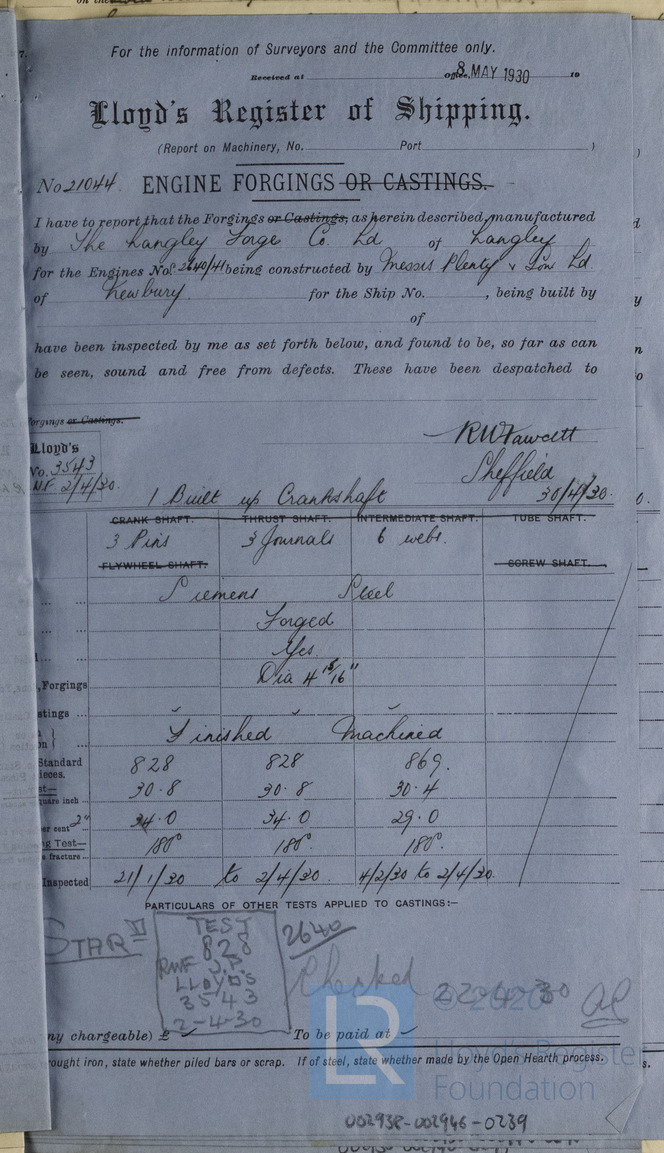 For the information of Surveyors and the Committee only.
Received at Office, 8 MAY 1930 19
Lloyd's Register of Shipping.
(Report on Machinery, No. Port )
No 21044. ENGINE FORGINGS OR CASTINGS.
I have to report that the Forgings or Castings, as herein described, manufactured
by The Langley Forge Co Ld of Langley
for the Engines Nos. 2640/41 being constructed by Messrs Plenty & Son Ld.
of Newbury for the Ship No. , being built by
of
have been inspected by me as set forth below, and found to be, so far as can
be seen, sound and free from defects. These have been despatched to
Forgings or Castings.
Lloyd's
No. 3543
2/4/30.
RW Fawcett
Sheffield
30/4/30.
1 Built up Crankshaft
CRANK SHAFT. THRUST SHAFT. INTERMEDIATE SHAFT. TUBE SHAFT.
3 Pins 3 Journals 6 webs.
FLYWHEEL SHAFT. SCREW SHAFT.
Siemens Steel
Forged
Yes.
Dia 4 15/16"
, Forgings
stings ...
Finished Machined
on
Standard 828 828 869.
ieces.
st— 30.8 30.8 30.4
quare inch ...
er cent 2" 34.0 34.0 29.0
g Test— 180° 180° 180°
e fracture ...
Inspected 21/1/30 to 2/4/30. 4/2/30 to 2/4/30.
PARTICULARS OF OTHER TESTS APPLIED TO CASTINGS:—
STAR VI
TEST
828
RWF J.P.
LLOYD'S
3543
2-4-30
2640
Checked 22-4-30
ny chargeable) £ To be paid at
rought iron, state whether piled bars or scrap. If of steel, state whether made by the Open Hearth process.
© 2020
LR
Lloyd's Register
Foundation
002938-002946-0239